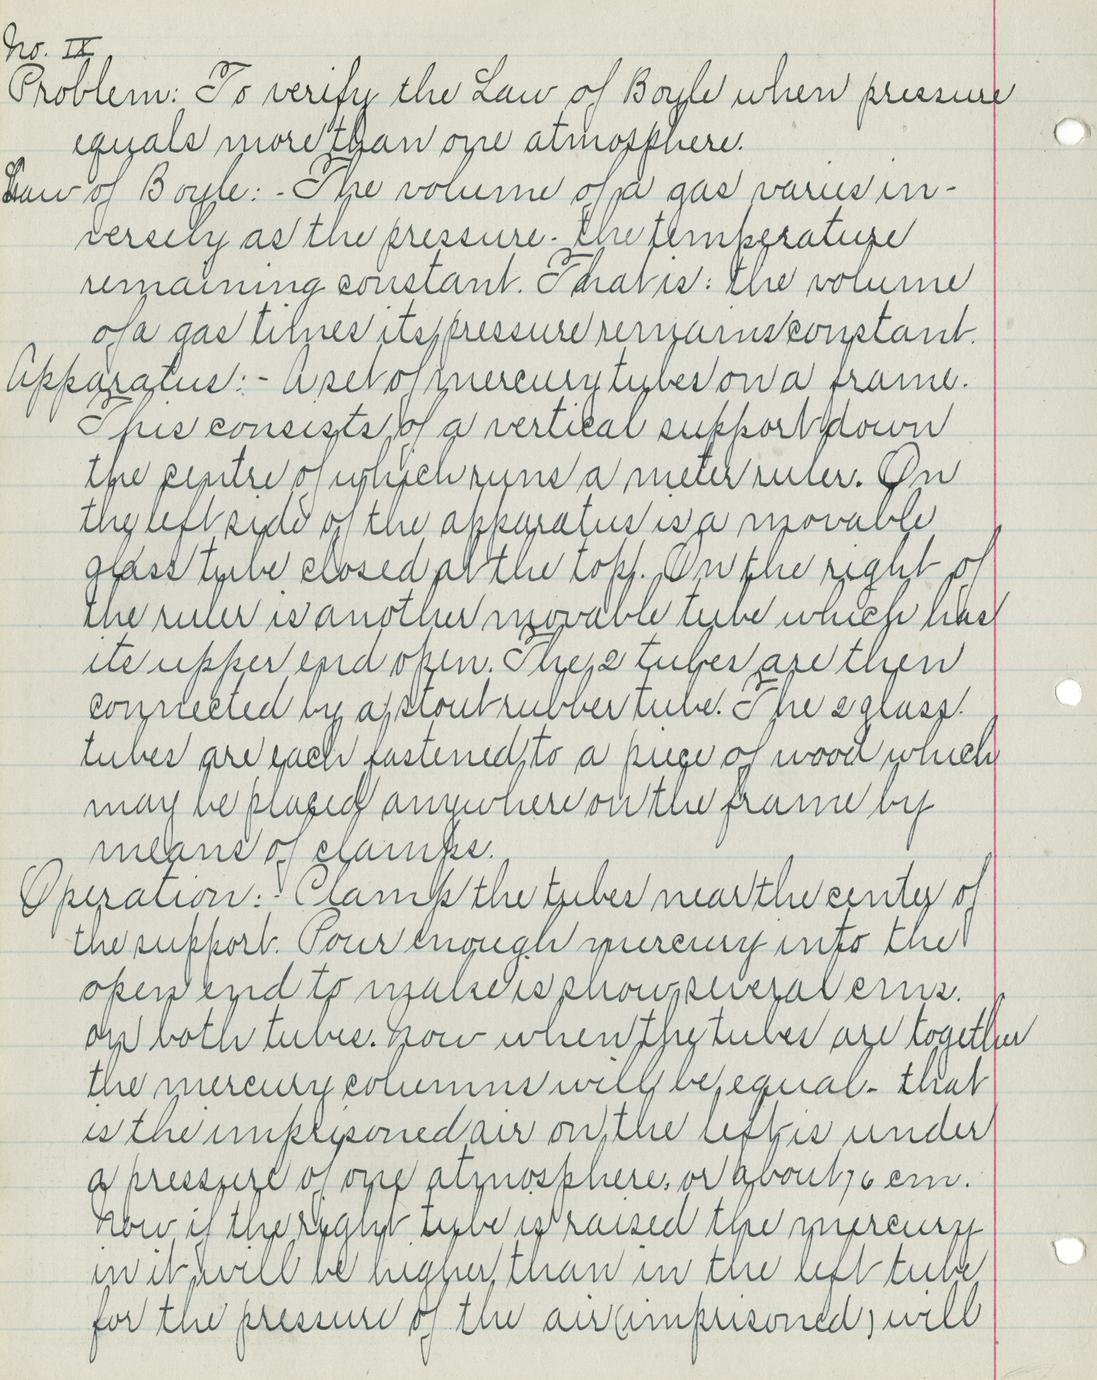 No. IX
Problem: To verify the Law of Boyle when pressure
equals more than one atmosphere.
Law of Boyle: - The volume of a gas varies in-
versely as the pressure - the temperature
remaining constant. That is: the volume
of a gas times its pressure remains constant.
Apparatus: - A set of mercury tubes on a frame.
This consists of a vertical support down
the centre of which runs a meter ruler. On
the left side of the apparatus is a movable
glass tube closed at the top. On the right of
the ruler is another movable tube which has
its upper end open. The 2 tubes are then
connected by a stout rubber tube. The 2 glass
tubes are each fastened to a piece of wood which
may be placed anywhere on the frame by
means of clamps.
Operation: - Clamp the tubes near the center of
the support. Pour enough mercury into the
open end to make is show several cms.
on both tubes. Now when the tubes are together
the mercury columns will be equal - that
is the imprisoned air on the left is under
a pressure of one atmosphere, or about 76 cm.
Now if the right tube is raised the mercury
in it will be higher than in the left tube
for the pressure of the air (imprisoned) will